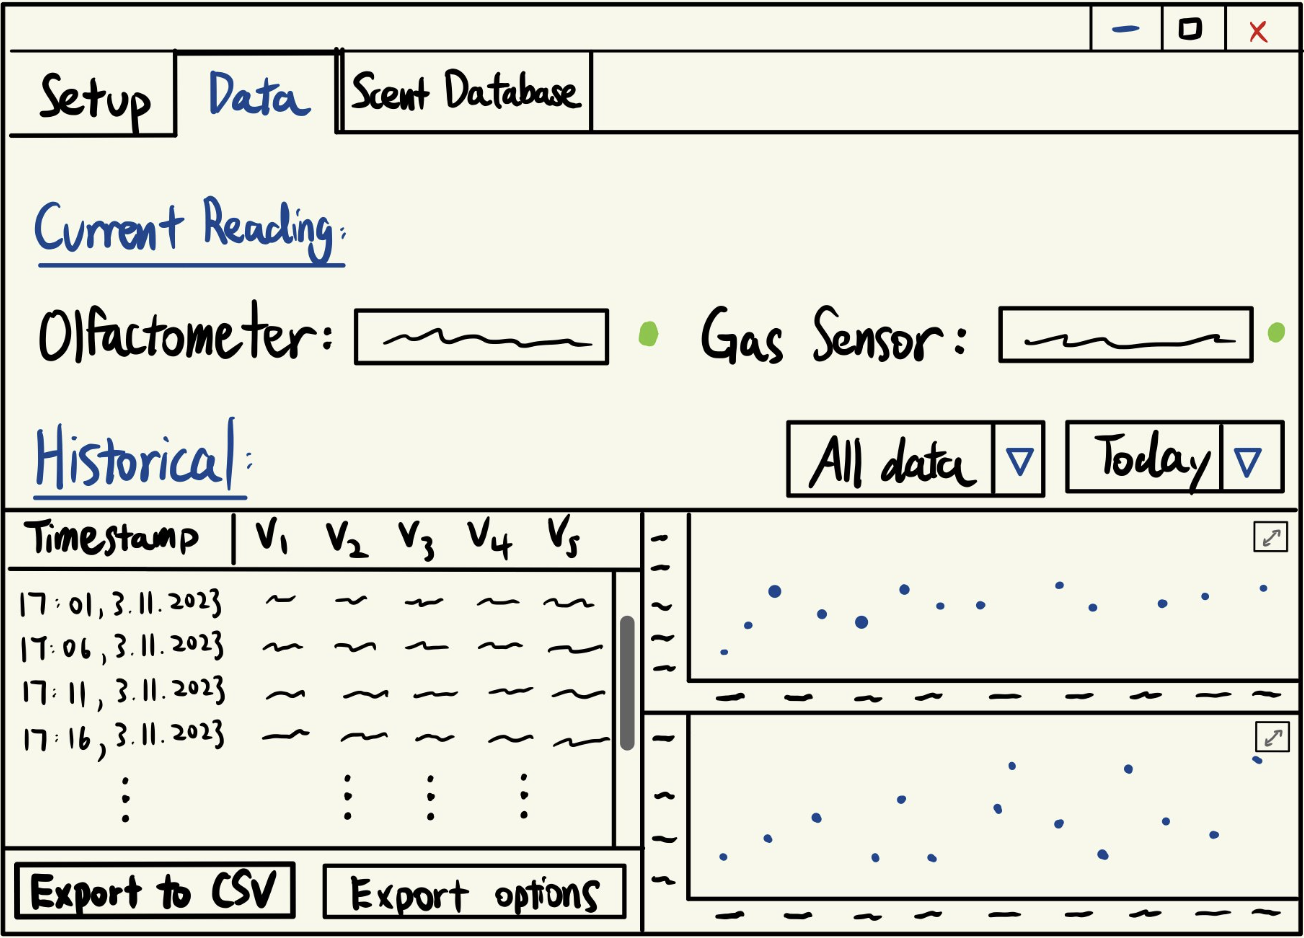 Setup Data Scent Database
Current Reading:
Olfactometer: Gas Sensor:
Historical: All data Today
Timestamp V1 V2 V3 V4 V5
17:01, 3.11.2023
17:06, 3.11.2023
17:11, 3.11.2023
17:16, 3.11.2023
Export to CSV Export options